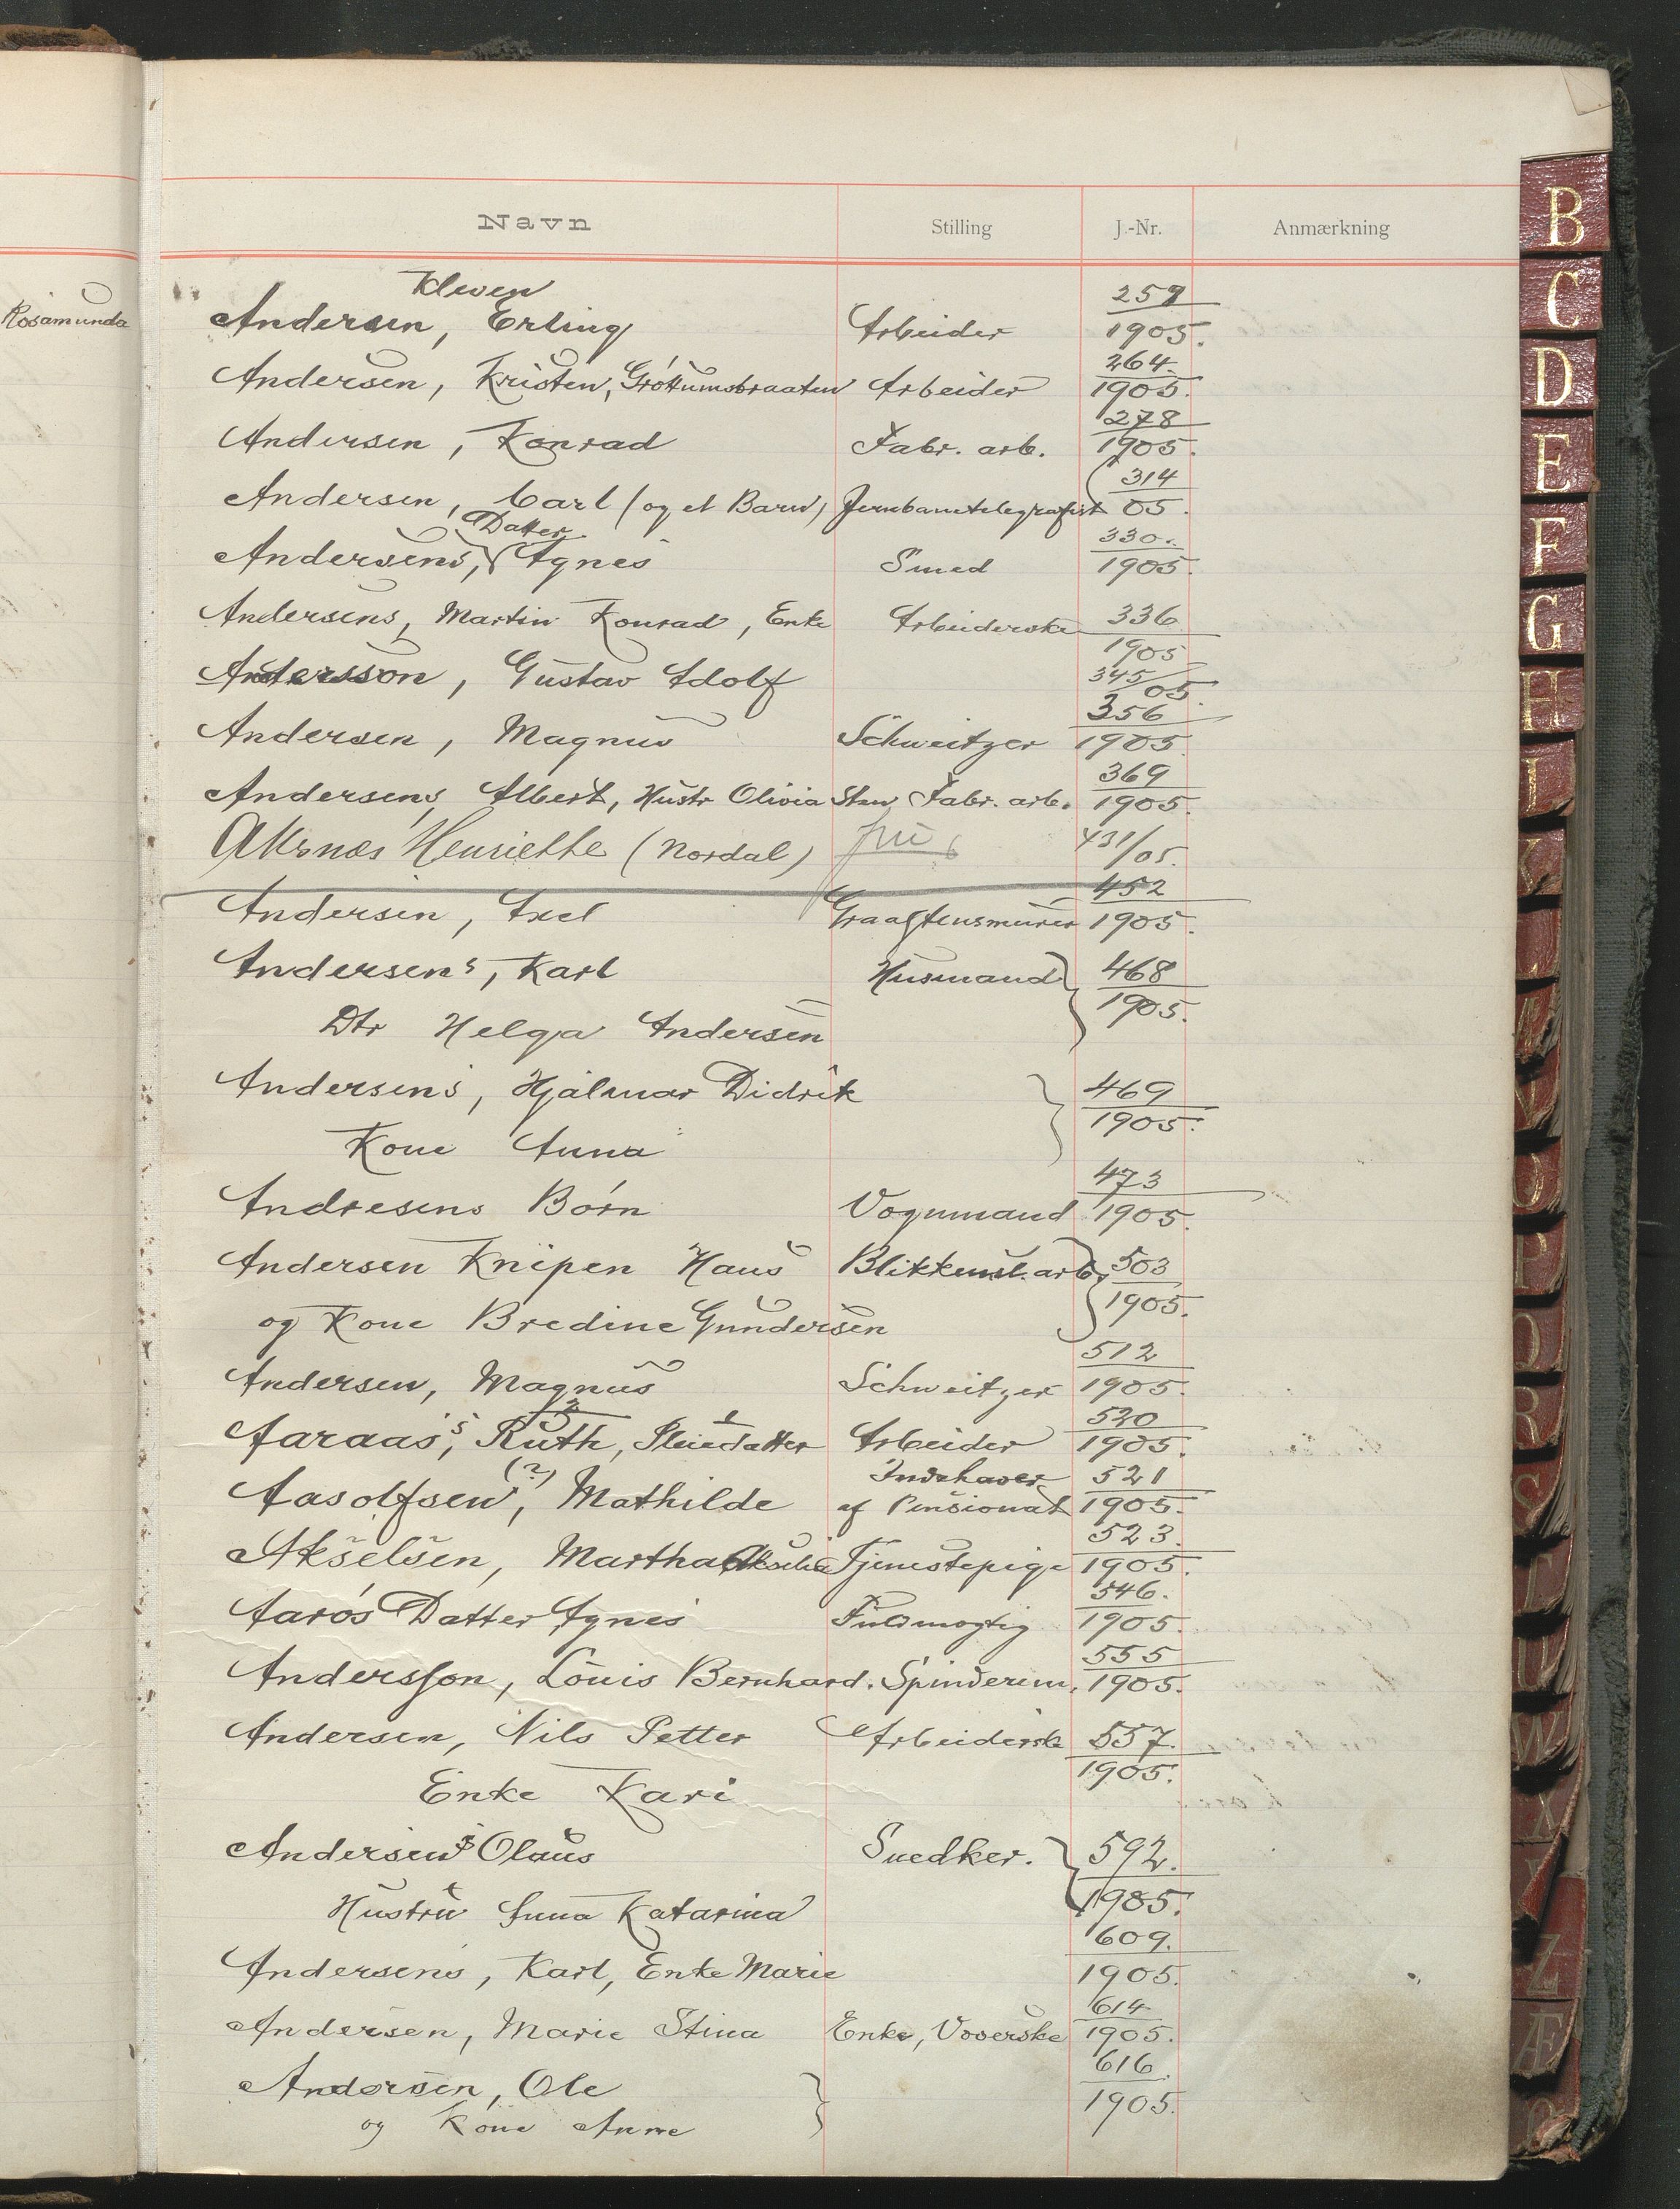 Rosamunda
Navn Stilling J.-Nr. Anmærkning
Kleven 259
Andersen, Erling Arbeider 1905.
264.
Andersen, Kristen, Gróttumsbraaten Arbeider 1905.
278
Andersen, Konrad Fabr. arb. 1905.
314
Andersen, Carl (og et Barn) Jernbanetelegrafist 05.
Datter 330.
Andersens, Agnes Smed 1905.
Andersens, Martin Konrad, Enke Arbeiderske 336
1905
Andersson, Gustav Adolf 345/05.
356
Andersen, Magnus Schweitzer 1905
369
Andersens, Albert, Hustr Olivia Fabr. arb. 1905.
Henriette (Nordal) fru 431/05.
452
Andersen, Axel Graastensmurer 1905.
Andersen's, Karl Husmand 468
1905.
Dtr Helga Andersen
Andersens, Hjalmar Didrik 469
1905.
Kone Anna
473
Andresens Børn Vognmand 1905.
Andersen Knipen Hans Blikkensl. arb. 503
1905.
og Kone Bredine Gundersen
512
Andersen, Magnus Schweitzer 1905.
2 1 520
Aaraas's, Ruth, Pleiedatter Arbeider 1905.
(?) Indehaver 521
Aasolfsen, Mathilde af Pensionat 1905.
523.
Akselsen, Martha Tjenestepige 1905.
546.
Aarøs Datter Agnes Fuldmægtig 1905.
555
Andersson, Louis Bernhard. Spinderim. 1905.
Andersen, Nils Petter Arbeidersk 557.
1905.
Enke Kari
Andersens Olaus Snedker. 592.
1905.
Hustru Anna Katarina
609.
Andersens, Karl, Enke Marie 1905.
614
Andersen, Marie Stina Enke, Væverske 1905.
616.
Andersen, Ole 1905.
og Kone Anne
B
C
D
E
F
G
H
I
K
L
M
N
O
P
Q
R
S
T
U
W
X
Z
Æ